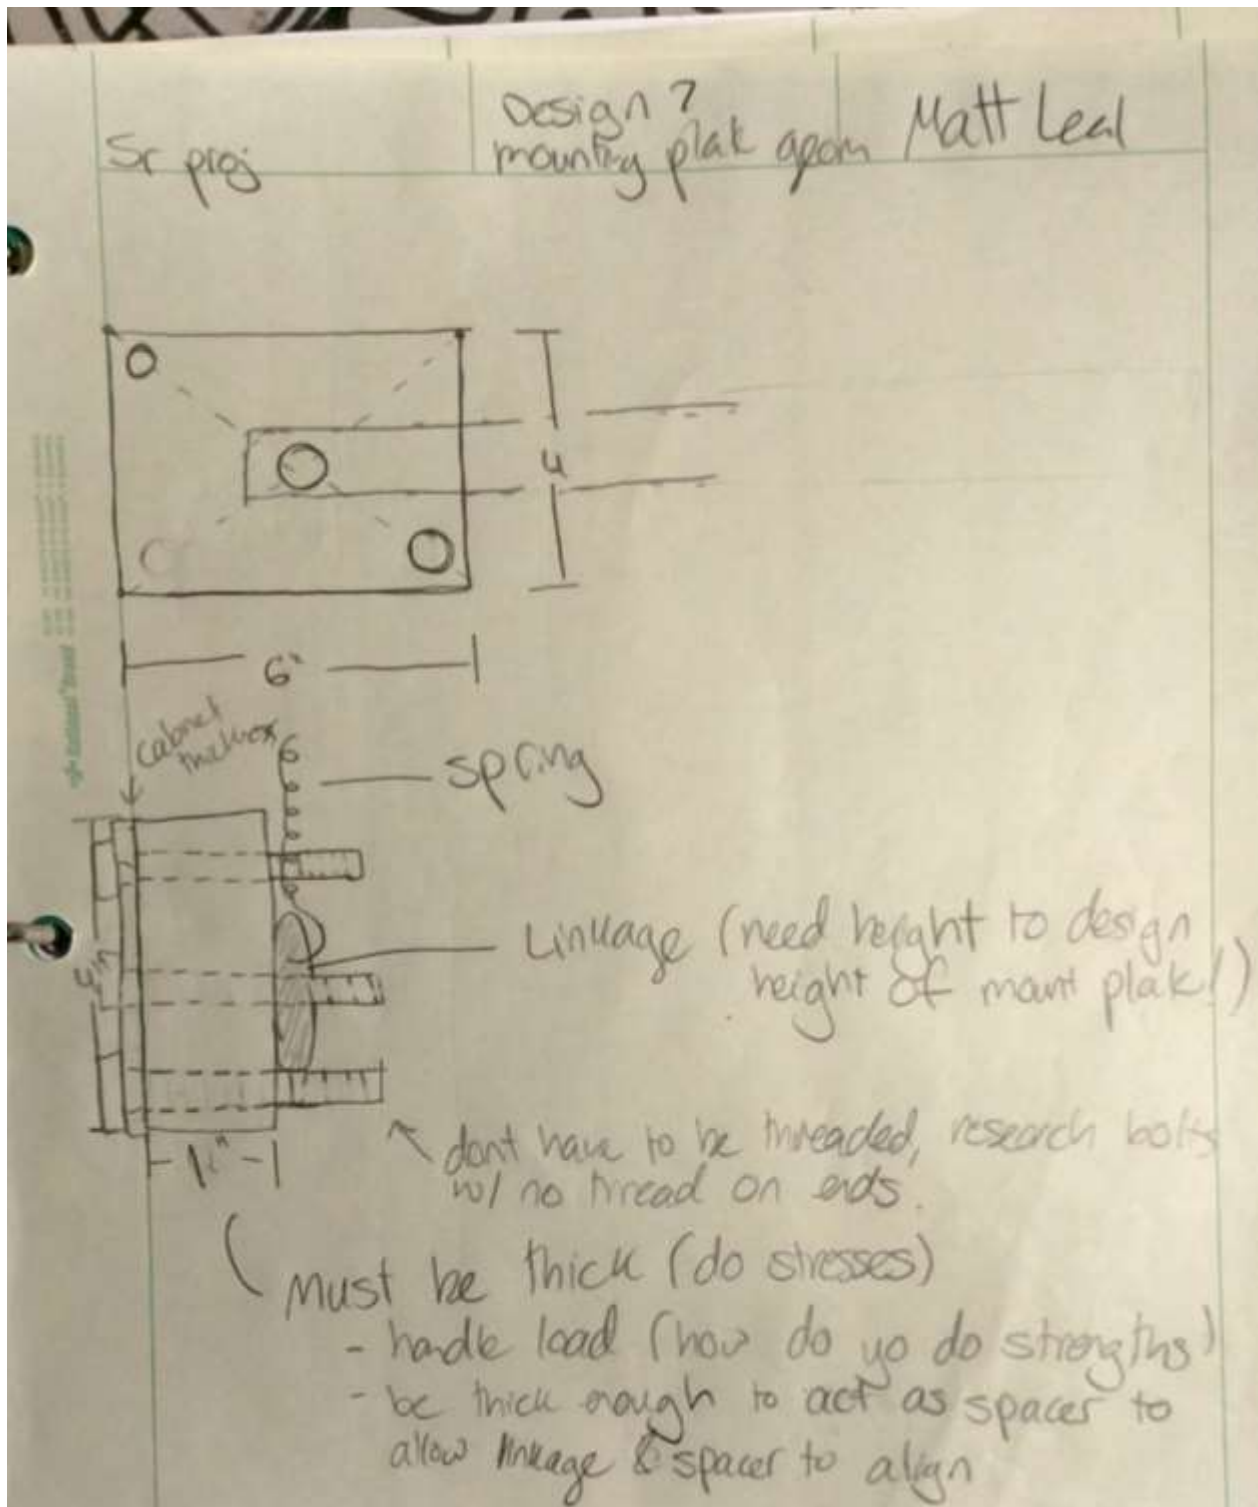 Sr proj
Design ?
mounting plak geom
Matt Leal
4
6"
cabnet
spring
Linkage (need height to design
height of mount plak!)
4in
dont have to be threaded, research bolts
w/ no thread on ends.
Must be thick (do stresses)
- handle load (how do yo do strengths)
- be thick enough to act as spacer to
allow linkage & spacer to align